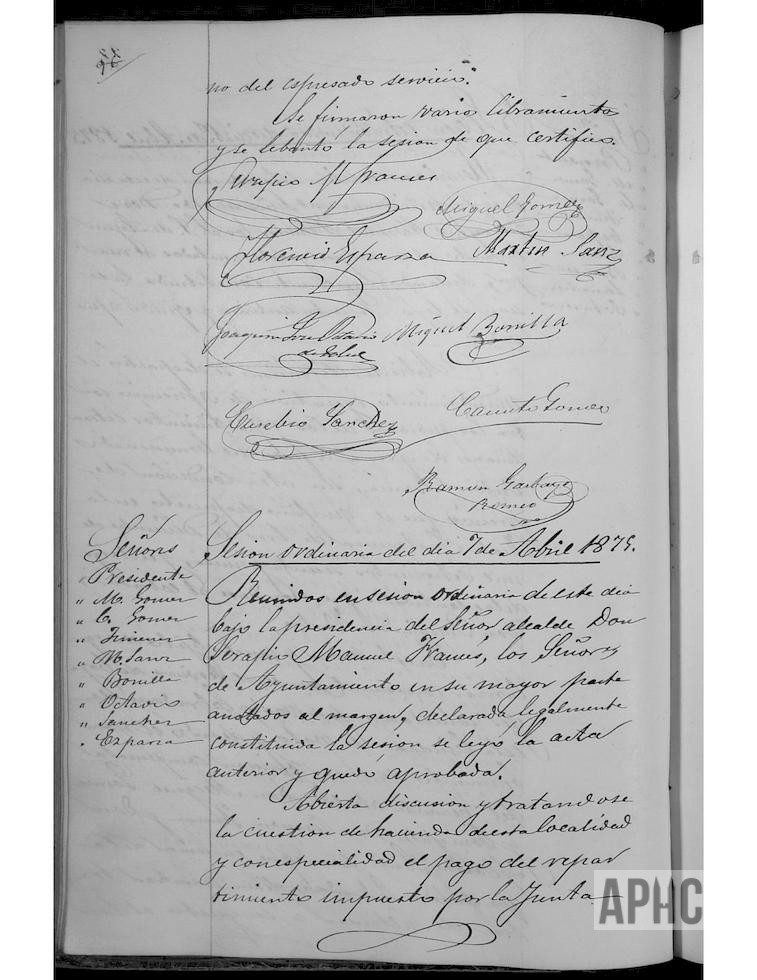 no del espresado servicio.
Se firmaron varios libramientos
y se lebantó la sesion de que certifico.
Serapio M Frances
Miguel Gomez
Florencio Esparza
Martin Sanz
Joaquin Octavio
de Toledo
Miguel Bonilla
Eusebio Sanchez
Canuto Gomez
Ramon Garbayo
Romeo
Señores
Presidente
" M. Gomez
" C. Gomez
" Jimenez
" M. Sanz
" Bonilla
" Octavio
" Sanchez
" Ezparza
Sesion ordinaria del dia 7 de Abril 1875.
Reunidos en sesion ordinaria de este dia
bajo la presidencia del Señor alcalde Don
Serapio Manuel Francés, los Señores
de Ayuntamiento en su mayor parte
anotados al margen, declarada legalmente
constituida la sesion se leyó la acta
anterior y quedó aprobada.
Abierta discusion y tratandose
la cuestion de hacienda de esta localidad
y con especialidad el pago del repar
timiento impuesto por la Junta
APHC